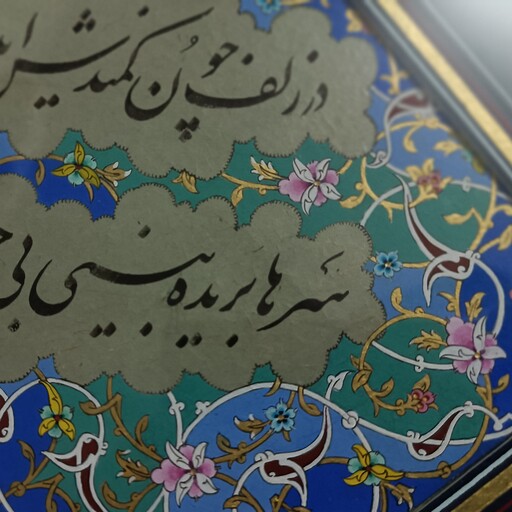 در زلف چون کمندش ای
سرها بریده بینی بی